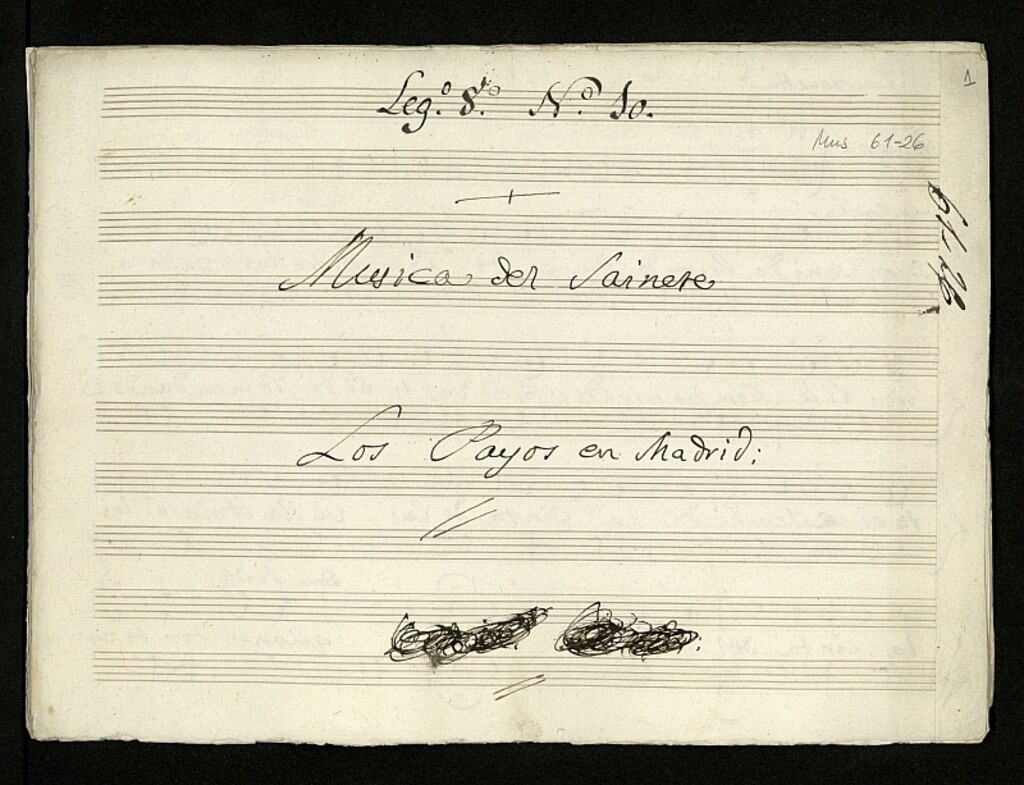 1
Leg.º 8.º N.º 10.
Mus 61-26
61-26
Musica del Sainete
Los Payos en Madrid;